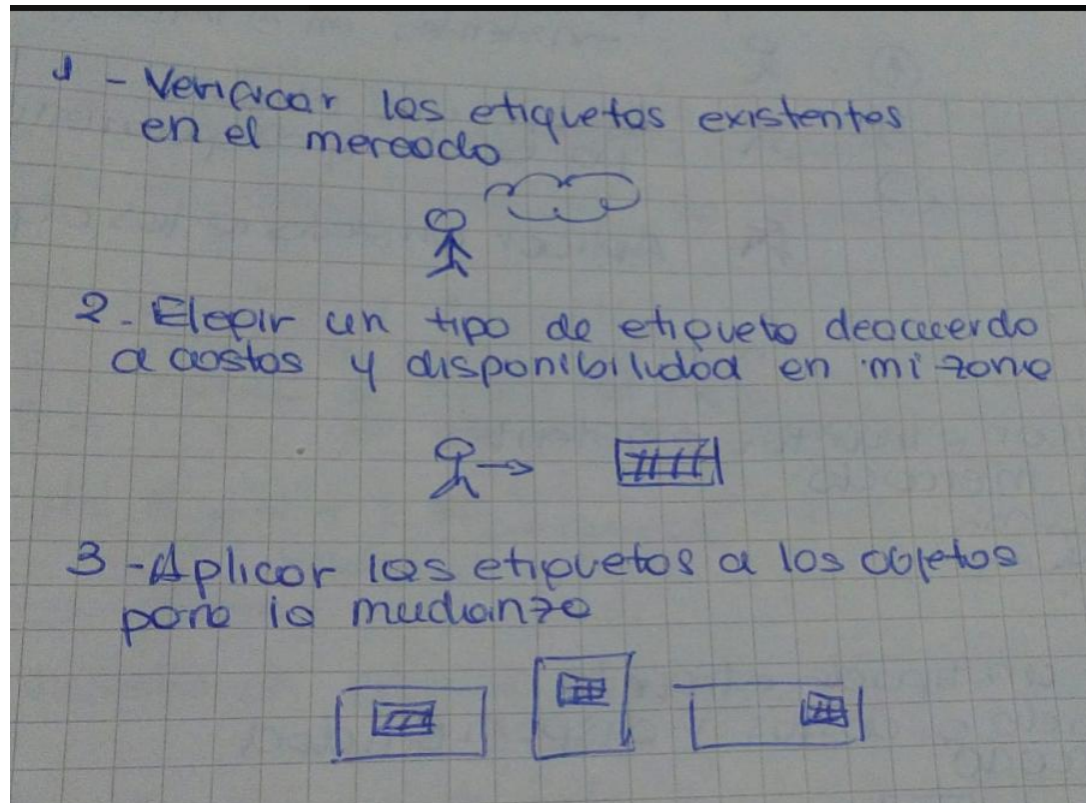 1 - Verificar las etiquetas existentes
en el mercado
2 - Elegir un tipo de etiqueta deacuerdo
a costos y disponibilidad en mi zona
3 - Aplicar las etiquetas a los objetos
para la mudanza